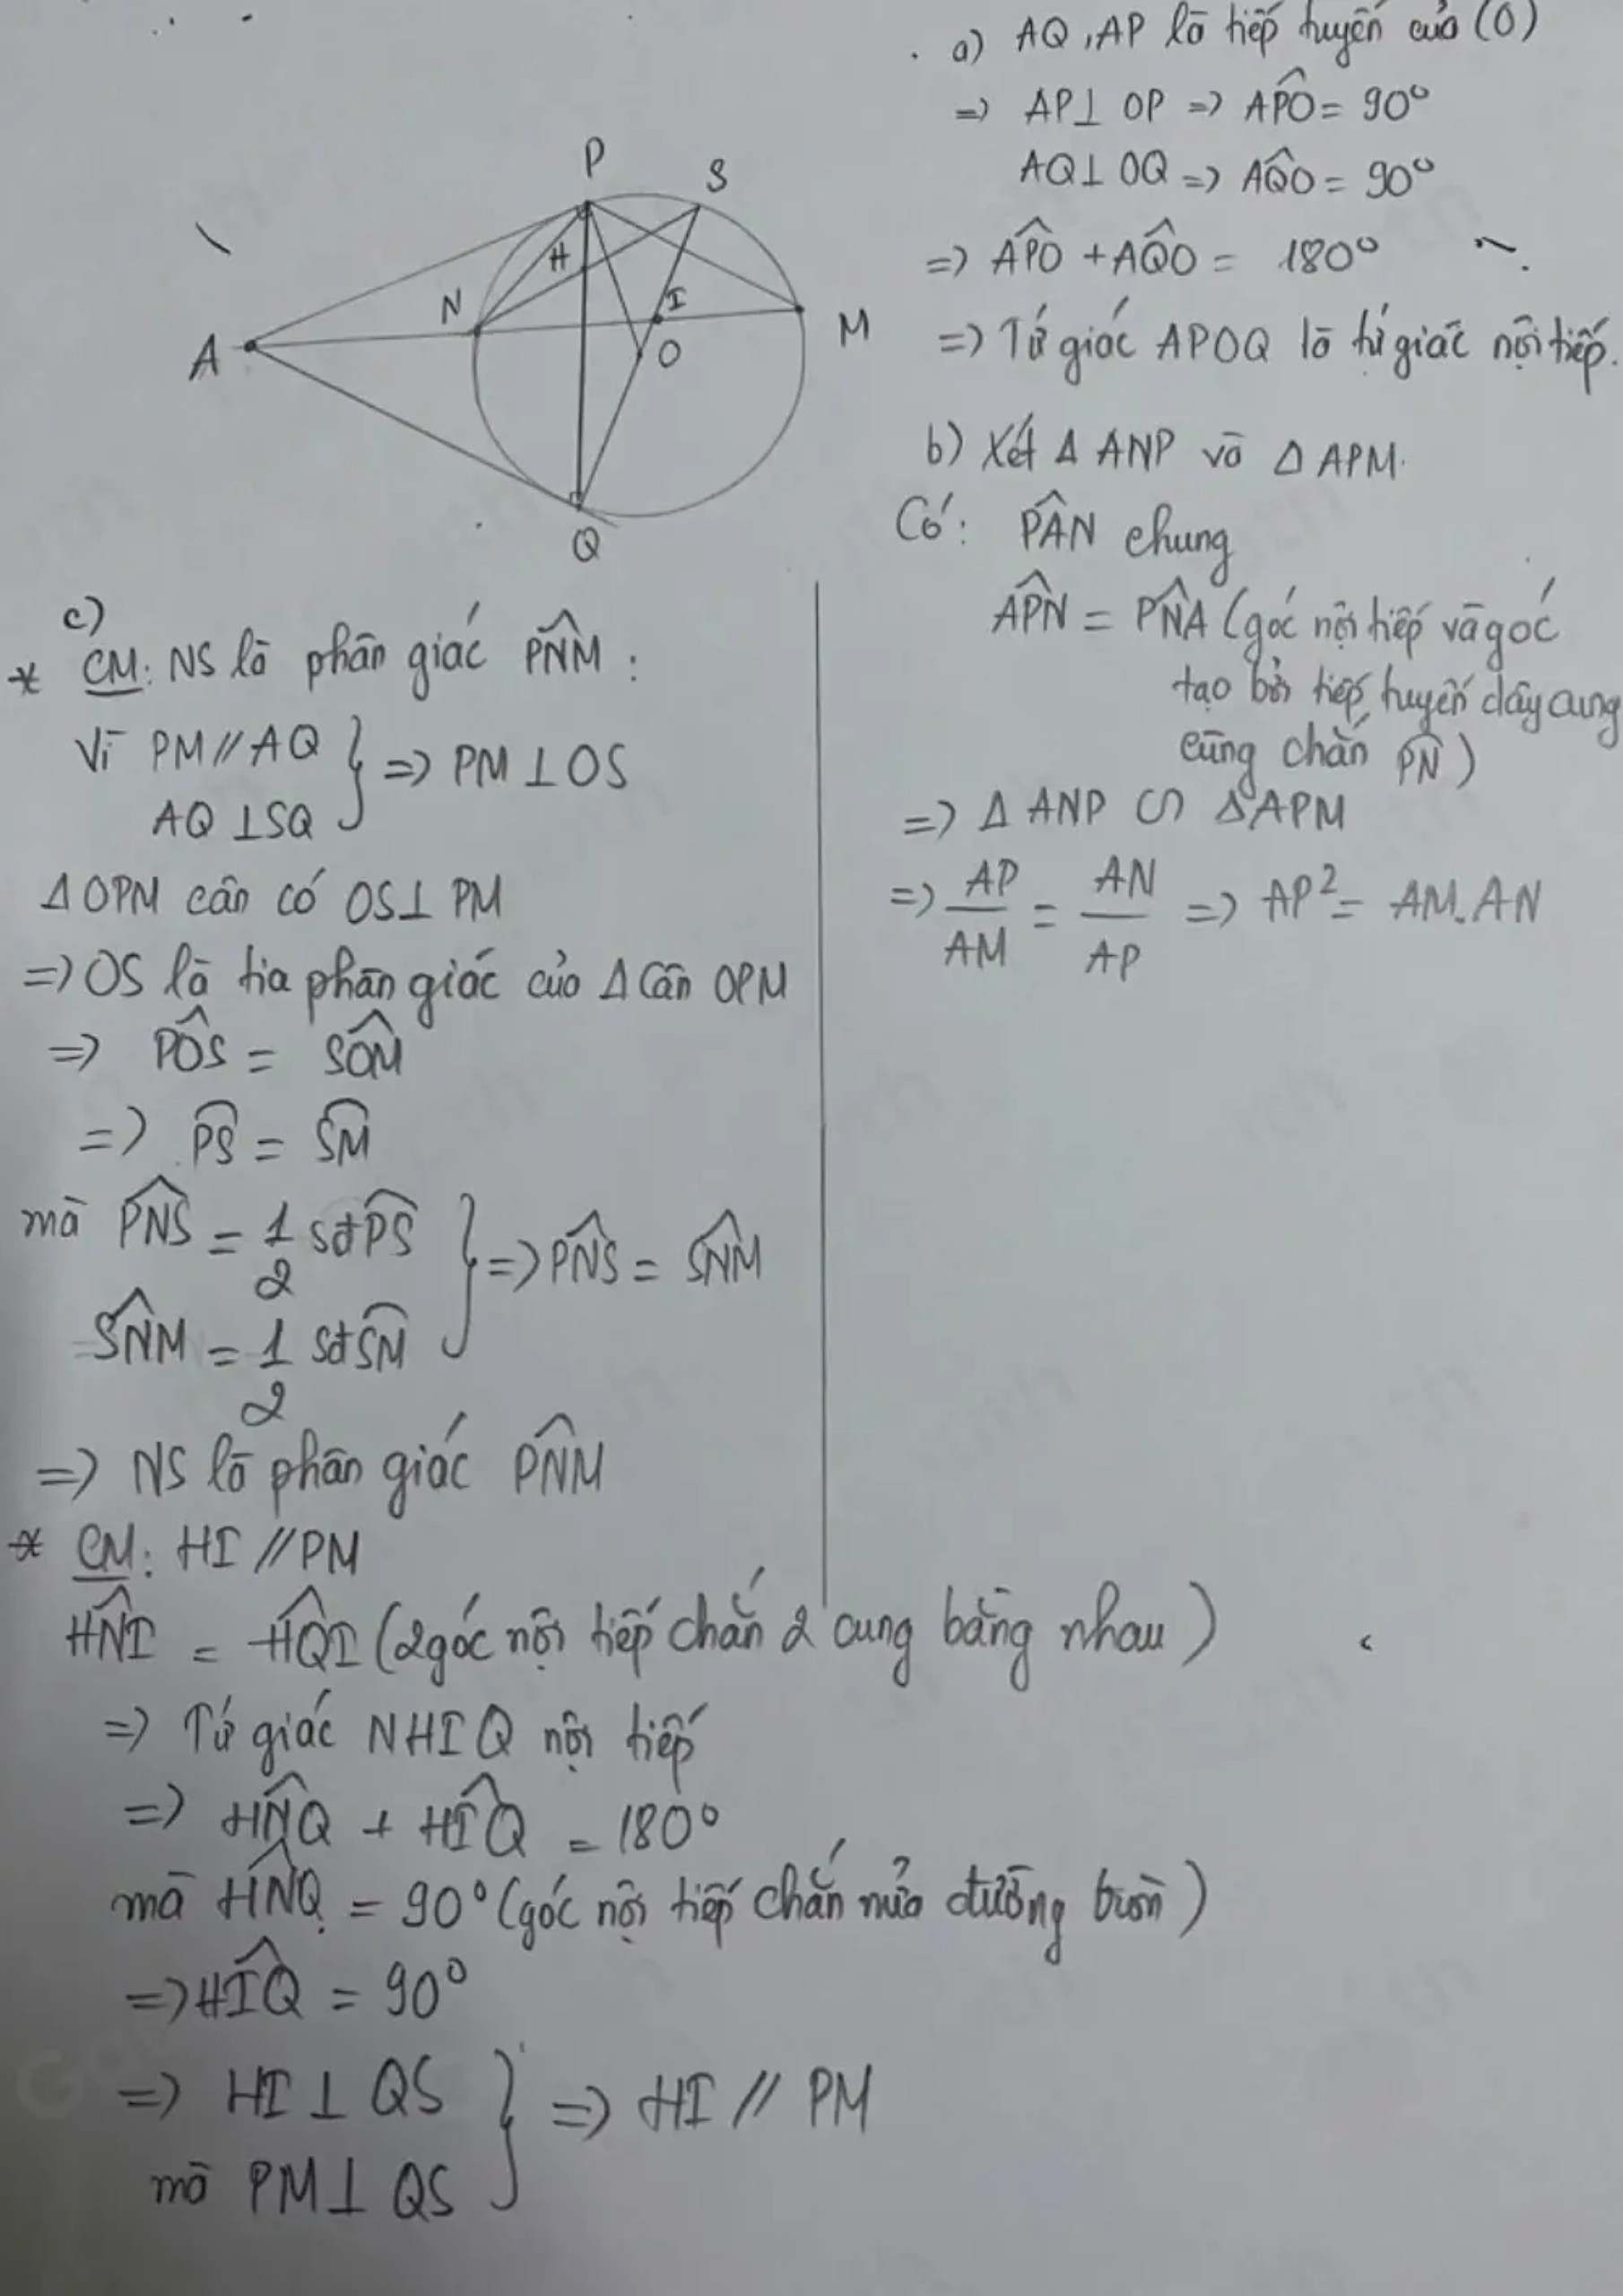 P
S
H
N
I
M
A
O
Q
a) AQ, AP là tiếp tuyến của (O)
=> AP⊥ OP => APO^ = 90°
AQ⊥ OQ => AQO^ = 90°
=> APO^ + AQO^ = 180°
=> Tứ giác APOQ là tứ giác nội tiếp.
b) Xét Δ ANP và Δ APM.
Có: PAN^ chung
APN^ = PNA^ (góc nội tiếp và góc
tạo bởi tiếp tuyến dây cung
cùng chắn PN⌢)
=> Δ ANP ∽ ΔAPM
=> AP/AM = AN/AP => AP² = AM.AN
c)
* CM: NS là phân giác PNM^ :
Vì PM // AQ
AQ ⊥SQ } => PM ⊥ OS
Δ OPM cân có OS⊥ PM
=> OS là tia phân giác của Δ cân OPM
=> POS^ = SOM^
=> PS⌢ = SM⌢
mà PNS^ = 1/2 sđ PS⌢
SNM^ = 1/2 sđ SM⌢ } => PNS^ = SNM^
=> NS là phân giác PNM^
* CM: HI // PM
HNI^ = HQI^ (2 góc nội tiếp chắn 2 cung bằng nhau)
=> Tứ giác NHIQ nội tiếp
=> HNQ^ + HIQ^ = 180°
mà HNQ^ = 90° (góc nội tiếp chắn nửa đường tròn)
=> HIQ^ = 90°
=> HI ⊥ QS
mà PM ⊥ QS } => HI // PM